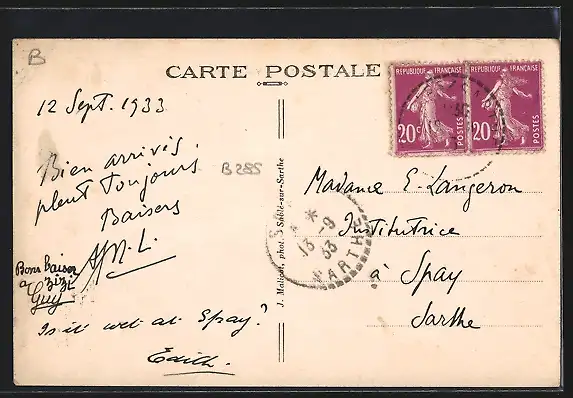 B
CARTE POSTALE
RÉPUBLIQUE FRANÇAISE
20c
POSTES
RÉPUBLIQUE FRANÇAISE
20
POSTES
12 Sept. 1933
Bien arrivés,
pleut toujours
Baisers
M. L.
B 285
Bons baisers
à Zizi
Guy
Is it wet at Spay?
Edith.
J. Malicot, phot. Sablé-sur-Sarthe
*
13-9
33
SARTHE
Madame E. Langeron
Institutrice
à Spay
Sarthe